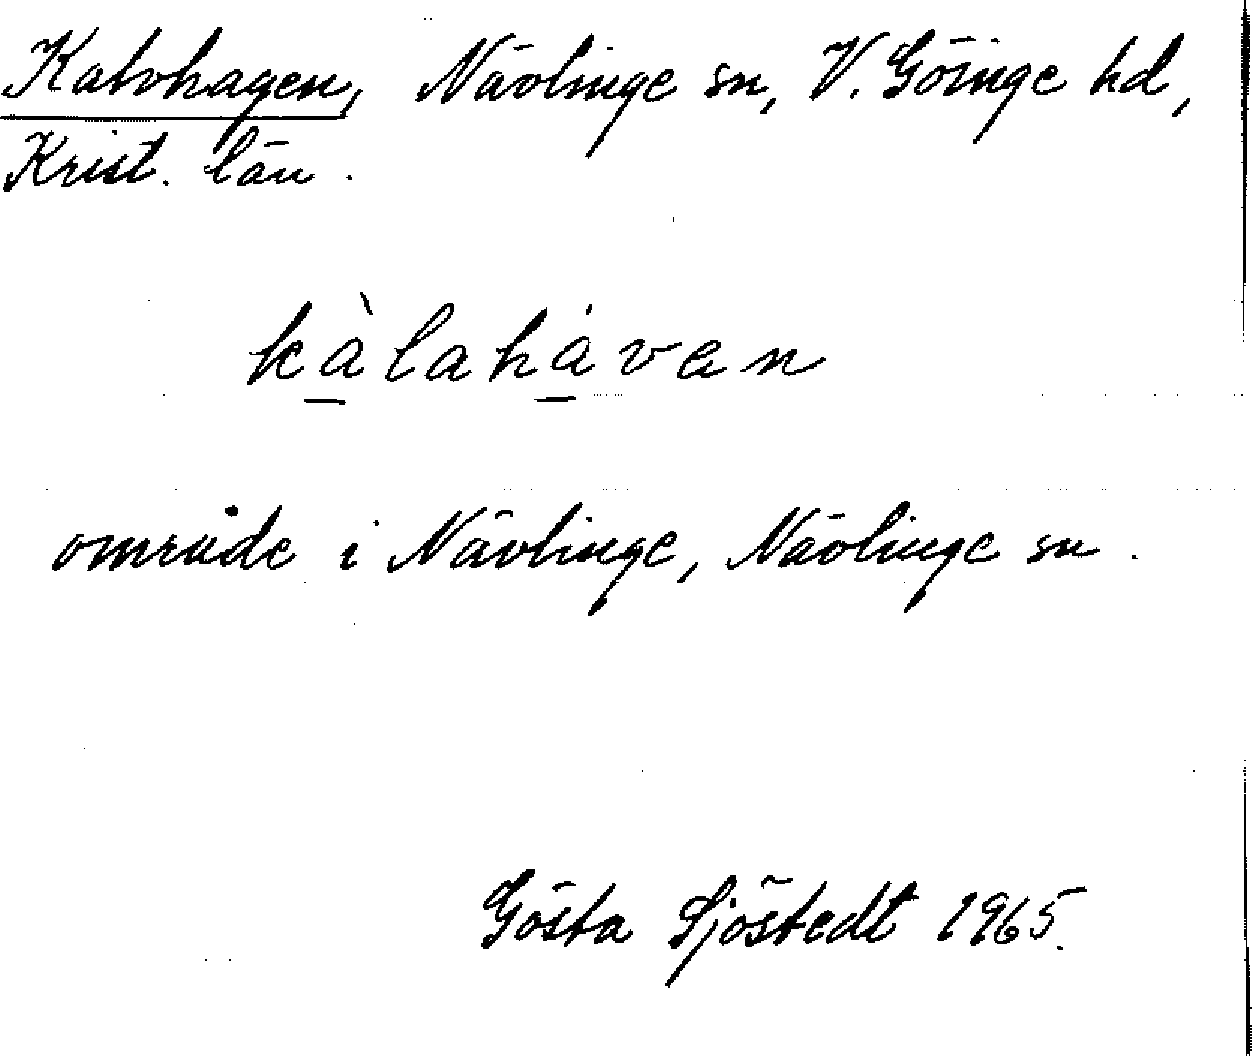 Kalvhagen, Nävlinge sn, V. Göinge hd,
Krist. län.
kàlahávan
område i Nävlinge, Nävlinge sn.
Gösta Sjöstedt 1965.